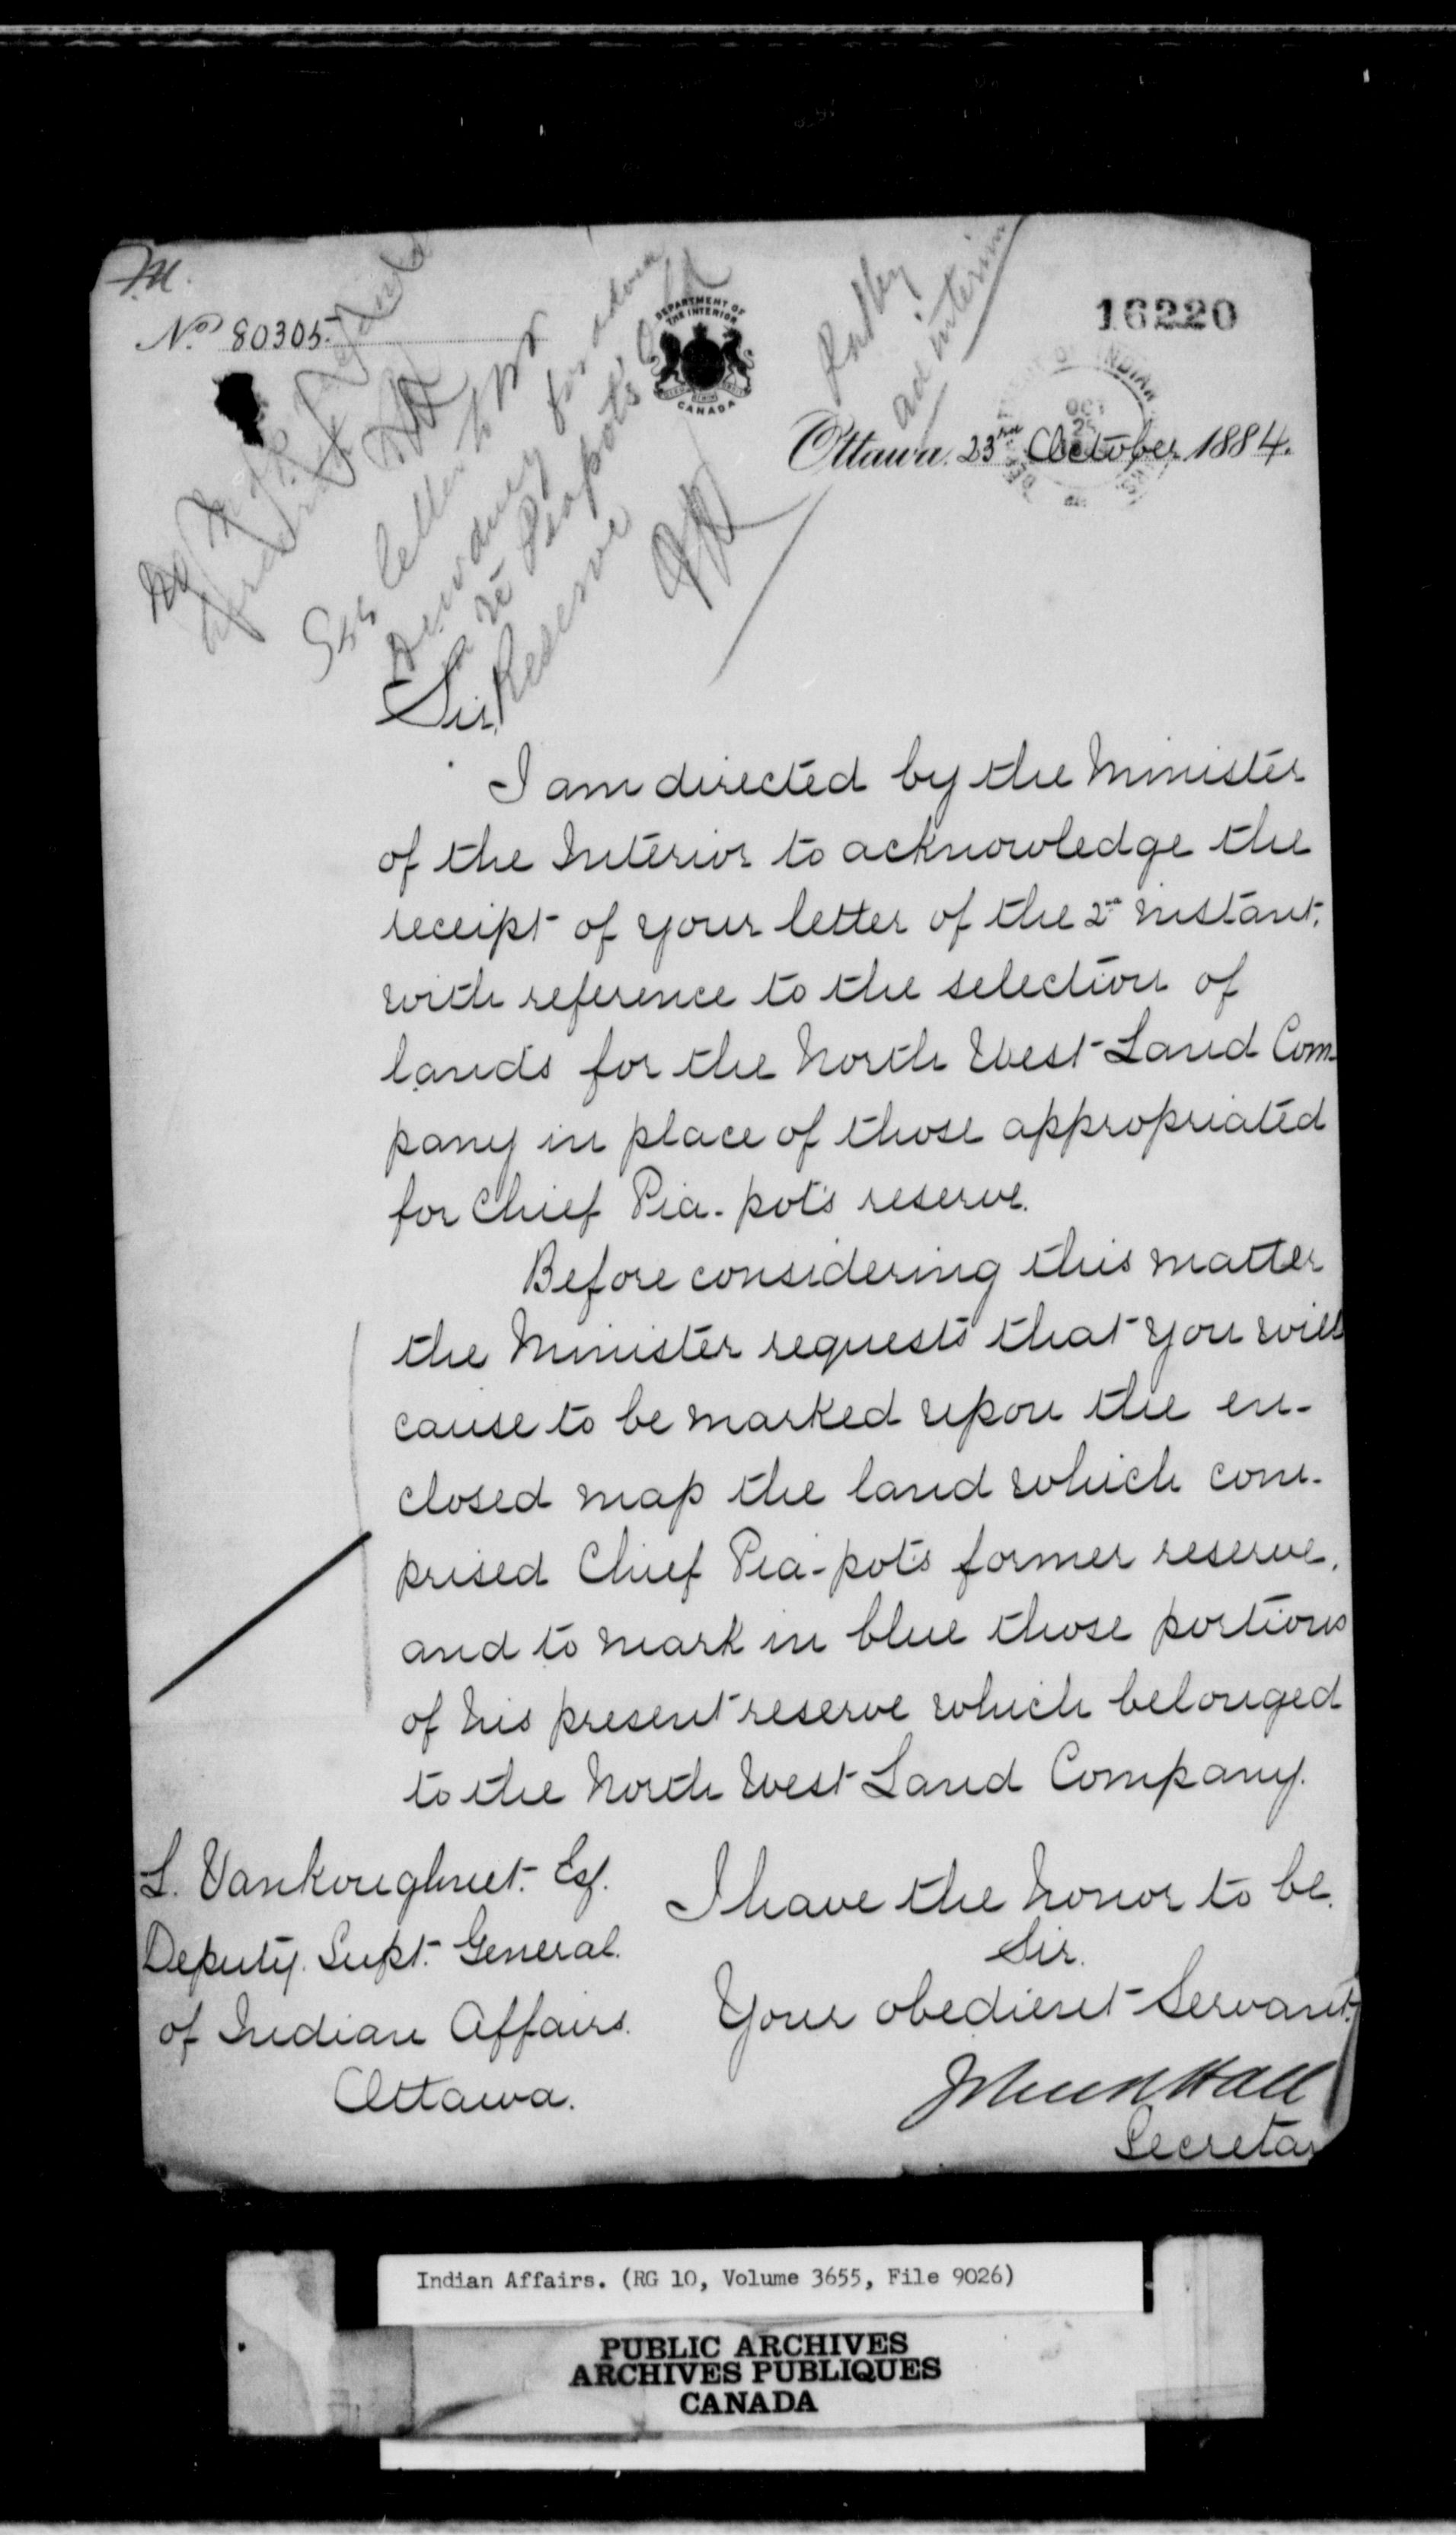 M.
No. 80305.
DEPARTMENT OF
THE INTERIOR
CANADA
16220
INDIAN
OCT
25
Ottawa. 23rd October 1884.
ad interim
See letter to Mr
Dewdney for
re Piapots Old
Reserve
Sir,
I am directed by the Minister
of the Interior to acknowledge the
receipt of your letter of the 2nd instant,
with reference to the selection of
lands for the North West Land Com-
pany in place of those appropriated
for Chief Pia-pot's reserve.
Before considering this matter
the Minister requests that you will
cause to be marked upon the en-
closed map the land which com-
prised Chief Pia-pot's former reserve,
and to mark in blue those portions
of his present reserve which belonged
to the North West Land Company.
I have the honor to be.
Sir.
Your obedient Servant,
John R Hall
Secretar
L. Vankoughnet. Esq.
Deputy. Supt. General.
of Indian Affairs.
Ottawa.
Indian Affairs. (RG 10, Volume 3655, File 9026)
PUBLIC ARCHIVES
ARCHIVES PUBLIQUES
CANADA